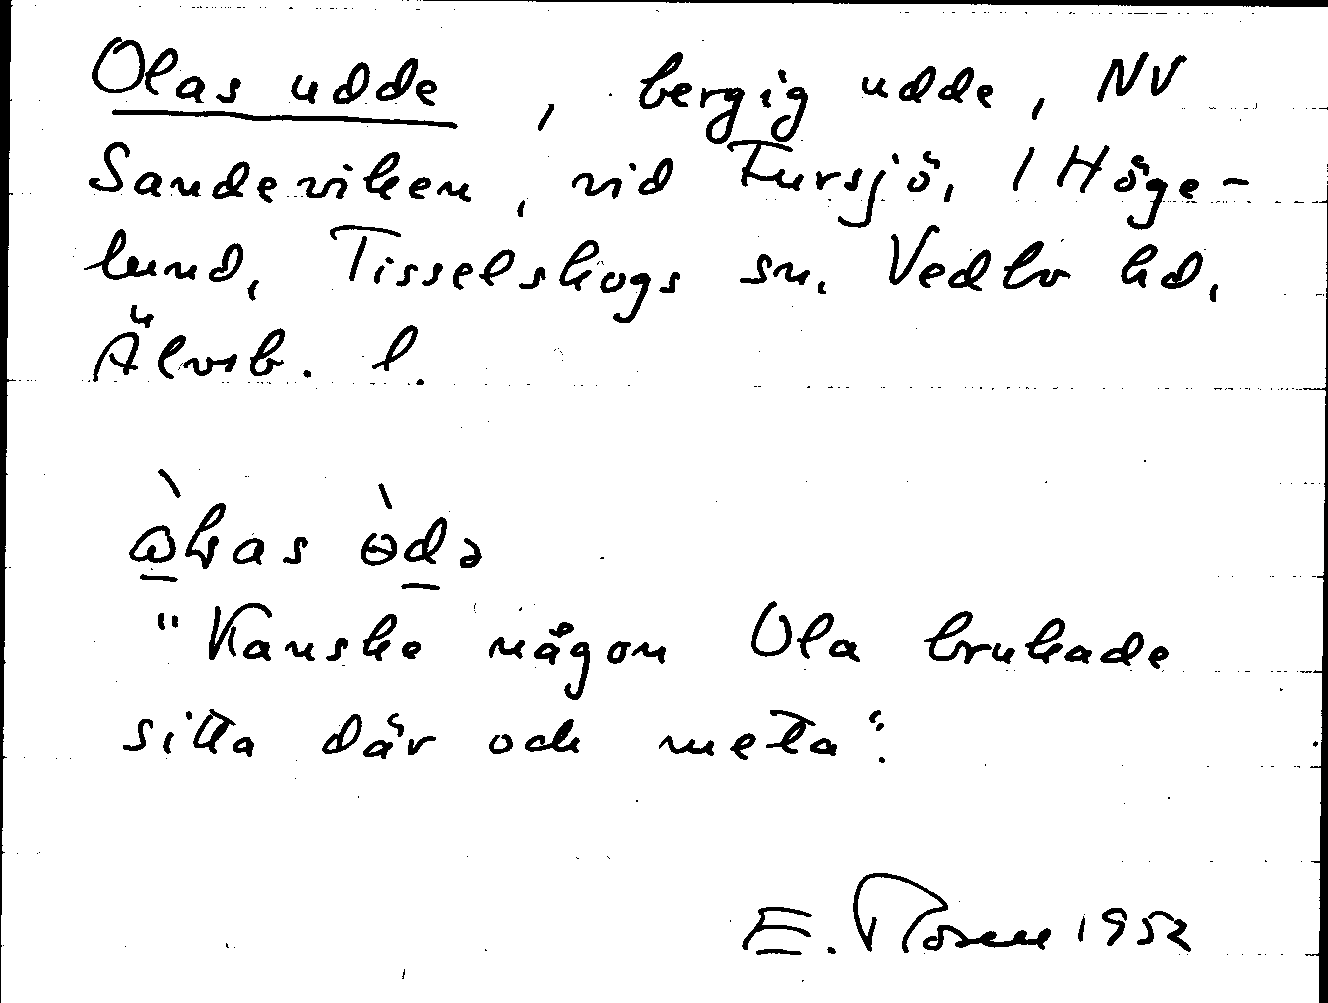 Olas udde, bergig udde, NV
Sandeviken, vid Fursjö, 1 Höge-
lund, Tisselskogs sn. Vedbo hd,
Älvsb. l.
"Kanske någon Ola brukade
sitta där och meta".
E. Rosell 1952